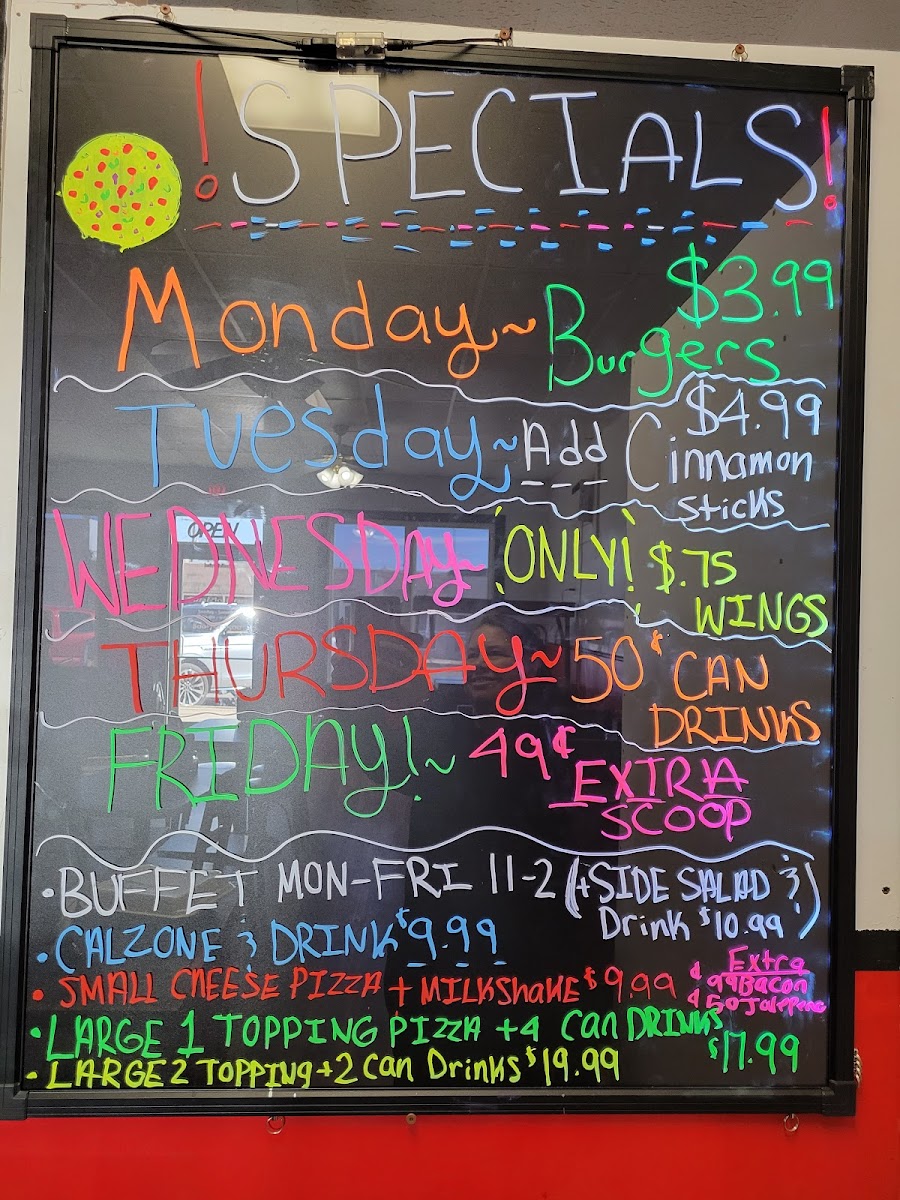 !SPECIALS!
Monday~ Burgers $3.99
Tuesday~ Add Cinnamon sticks $4.99
OPEN
WEDNESDAY~ !ONLY! $.75 WINGS
THURSDAY~ 50¢ CAN DRINKS
FRIDAY!~ 49¢ EXTRA SCOOP
•BUFFET MON-FRI 11-2 (+SIDE SALAD & Drink $10.99)
•CALZONE & DRINK $9.99
•SMALL CHEESE PIZZA + MILKShaKE $9.99
Extra
¢99 Bacon
¢50 Jalepeno
•LARGE 1 TOPPING PIZZA +4 Can DRINKS $17.99
•LARGE 2 TOPPING +2 Can Drinks $19.99